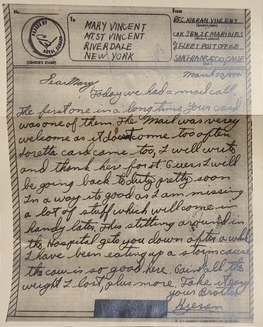 No.
To
From
MARY VINCENT
MT. ST VINCENT
RIVERDALE
NEW YORK
KIERAN VINCENT
MARINES
FLEET POST OFFICE
SAN FRANCISCO CALIF
(CENSOR'S STAMP)
March
Dear Mary
Today we had a mail call,
the first one in a long time, your card
was one of them. The Mail was very
welcome as it doesn't come too often
Loretta card came too, I will write
and thank her for it Guess I will
be going back to duty pretty soon
In a way its good as I am missing
a lot of stuff which will come in
handy later. This sitting around in
the Hospital gets you down after a while
I have been eating up a storm cause
the chow is so good here. Gain all the
weight I lost, plus more. Take it easy
your Brother
Kieran